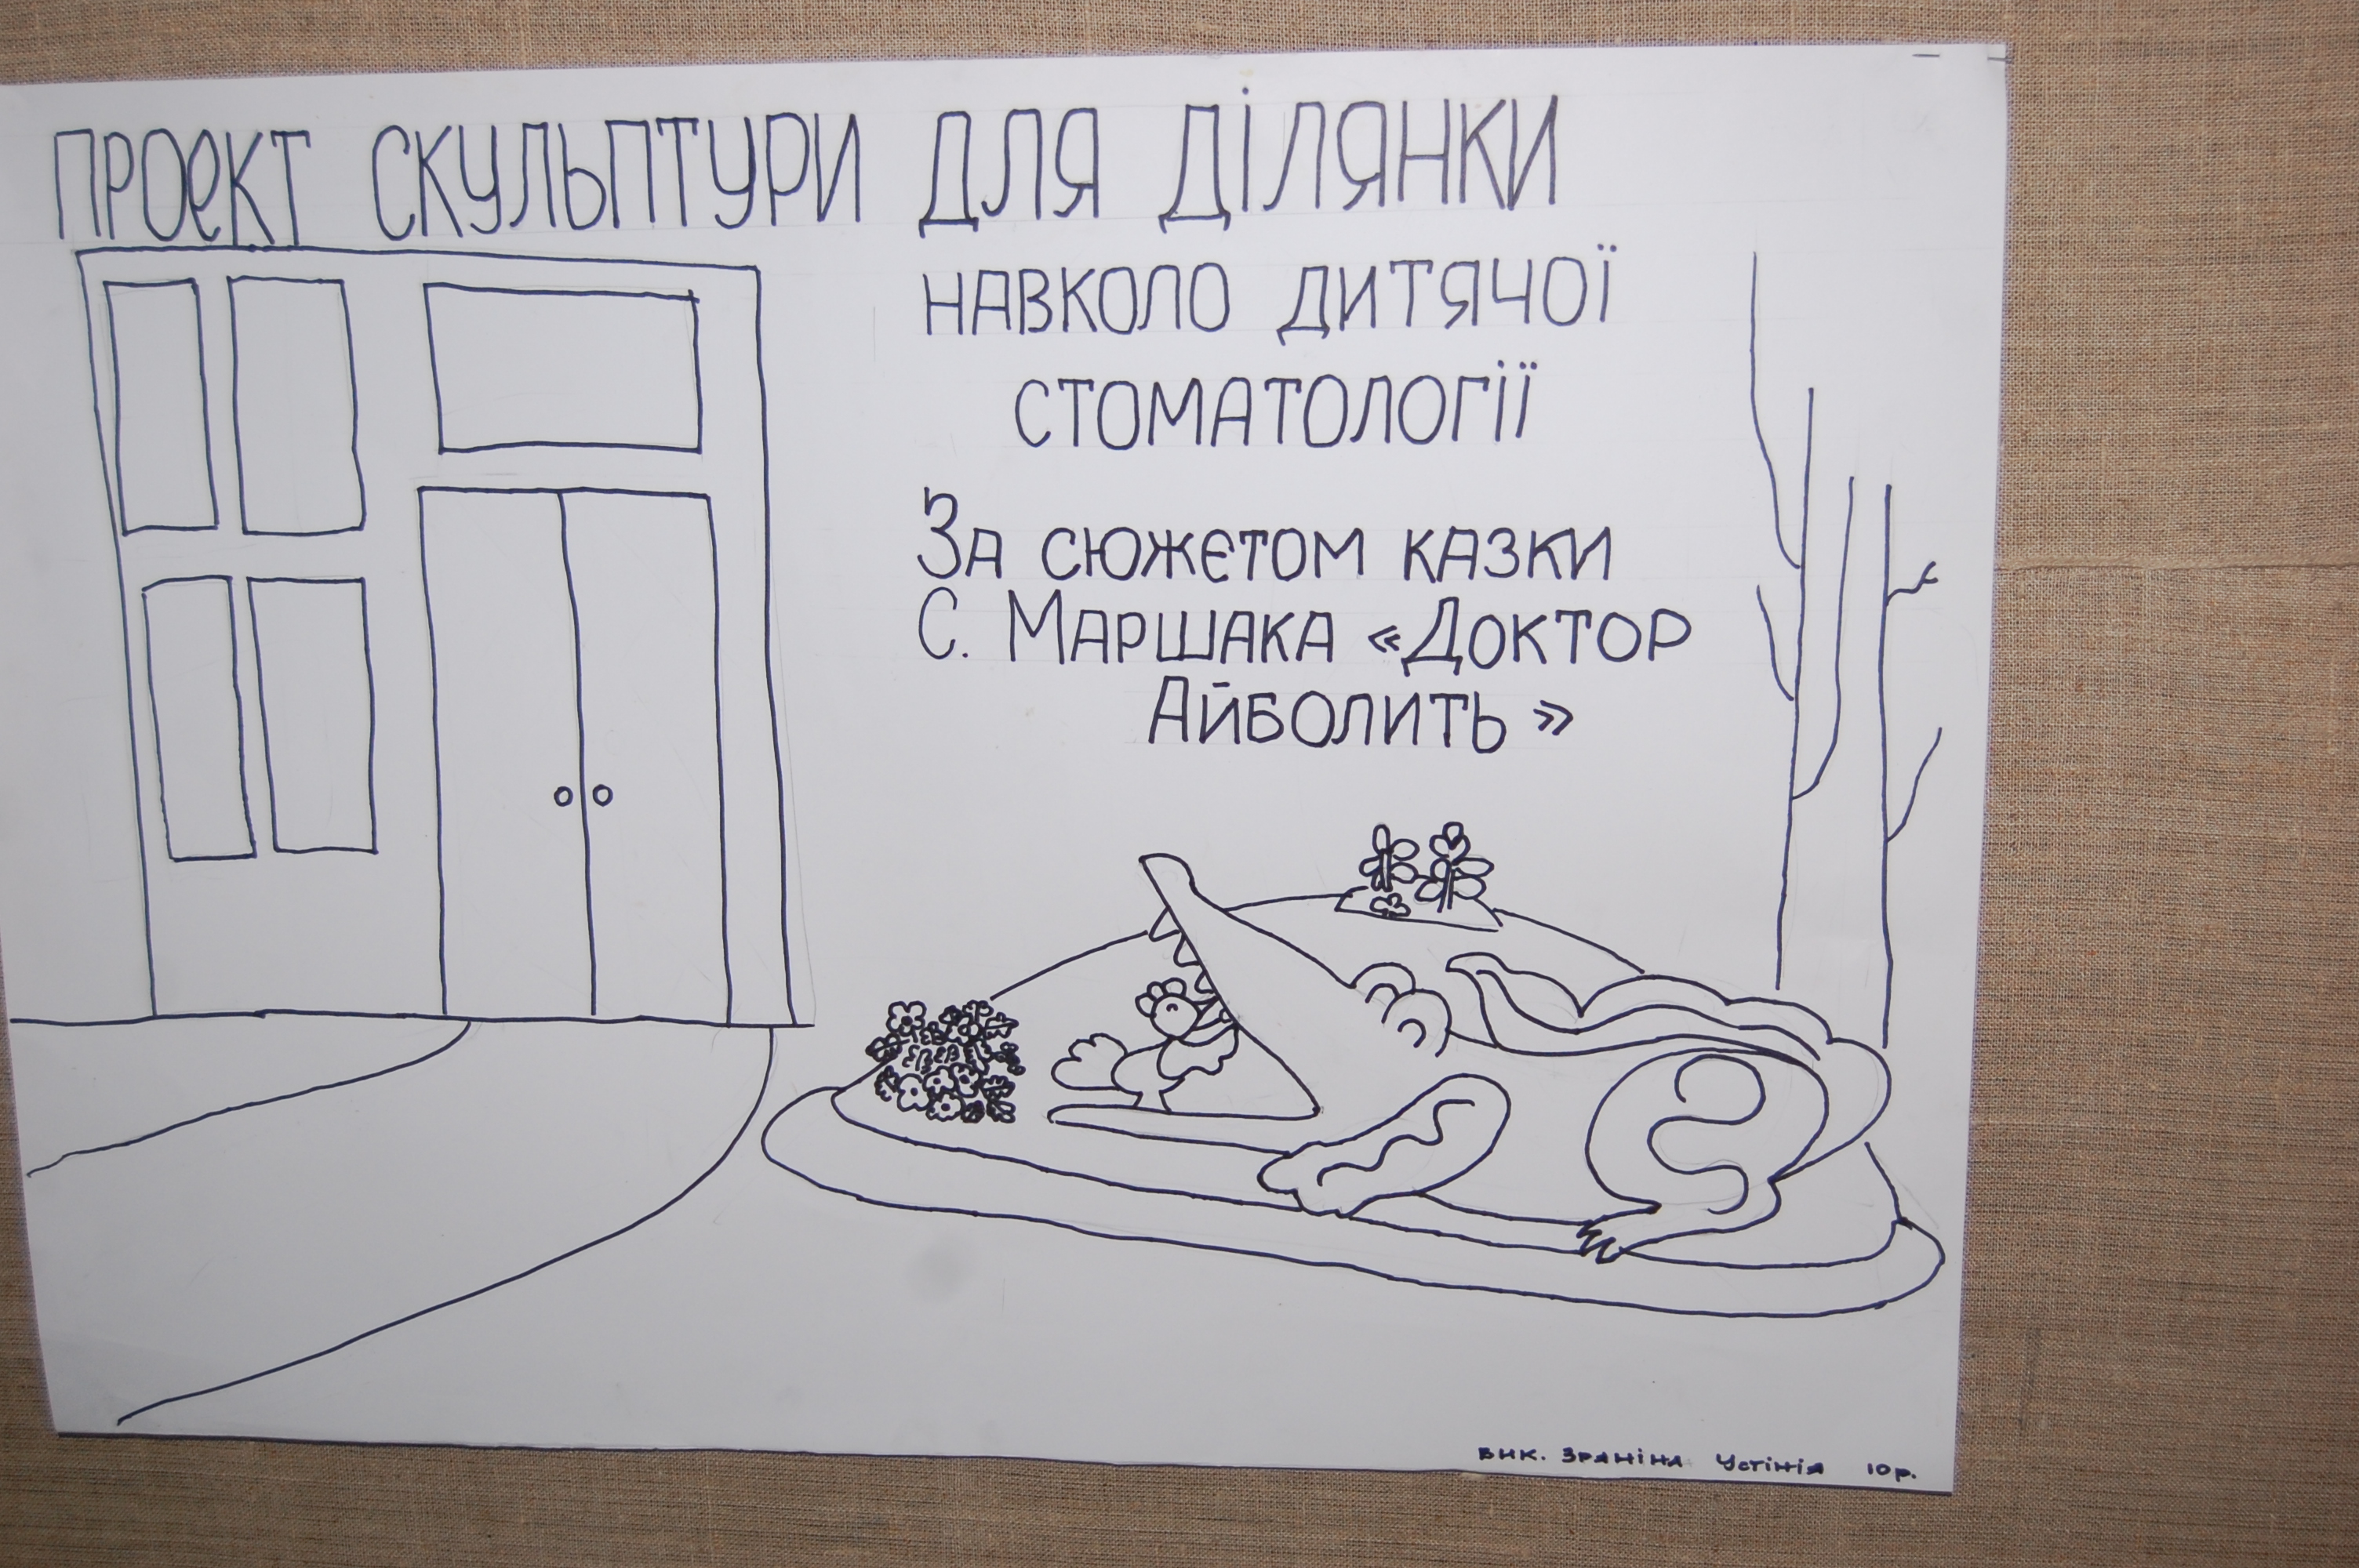 ПРОЕКТ СКУЛЬПТУРИ ДЛЯ ДІЛЯНКИ
НАВКОЛО ДИТЯЧОЇ
СТОМАТОЛОГІЇ
ЗА СЮЖЕТОМ КАЗКИ
С. МАРШАКА «ДОКТОР
АЙБОЛИТЬ»
ВИК. ЗРЯНІНА УСТІНІЯ 10 р.